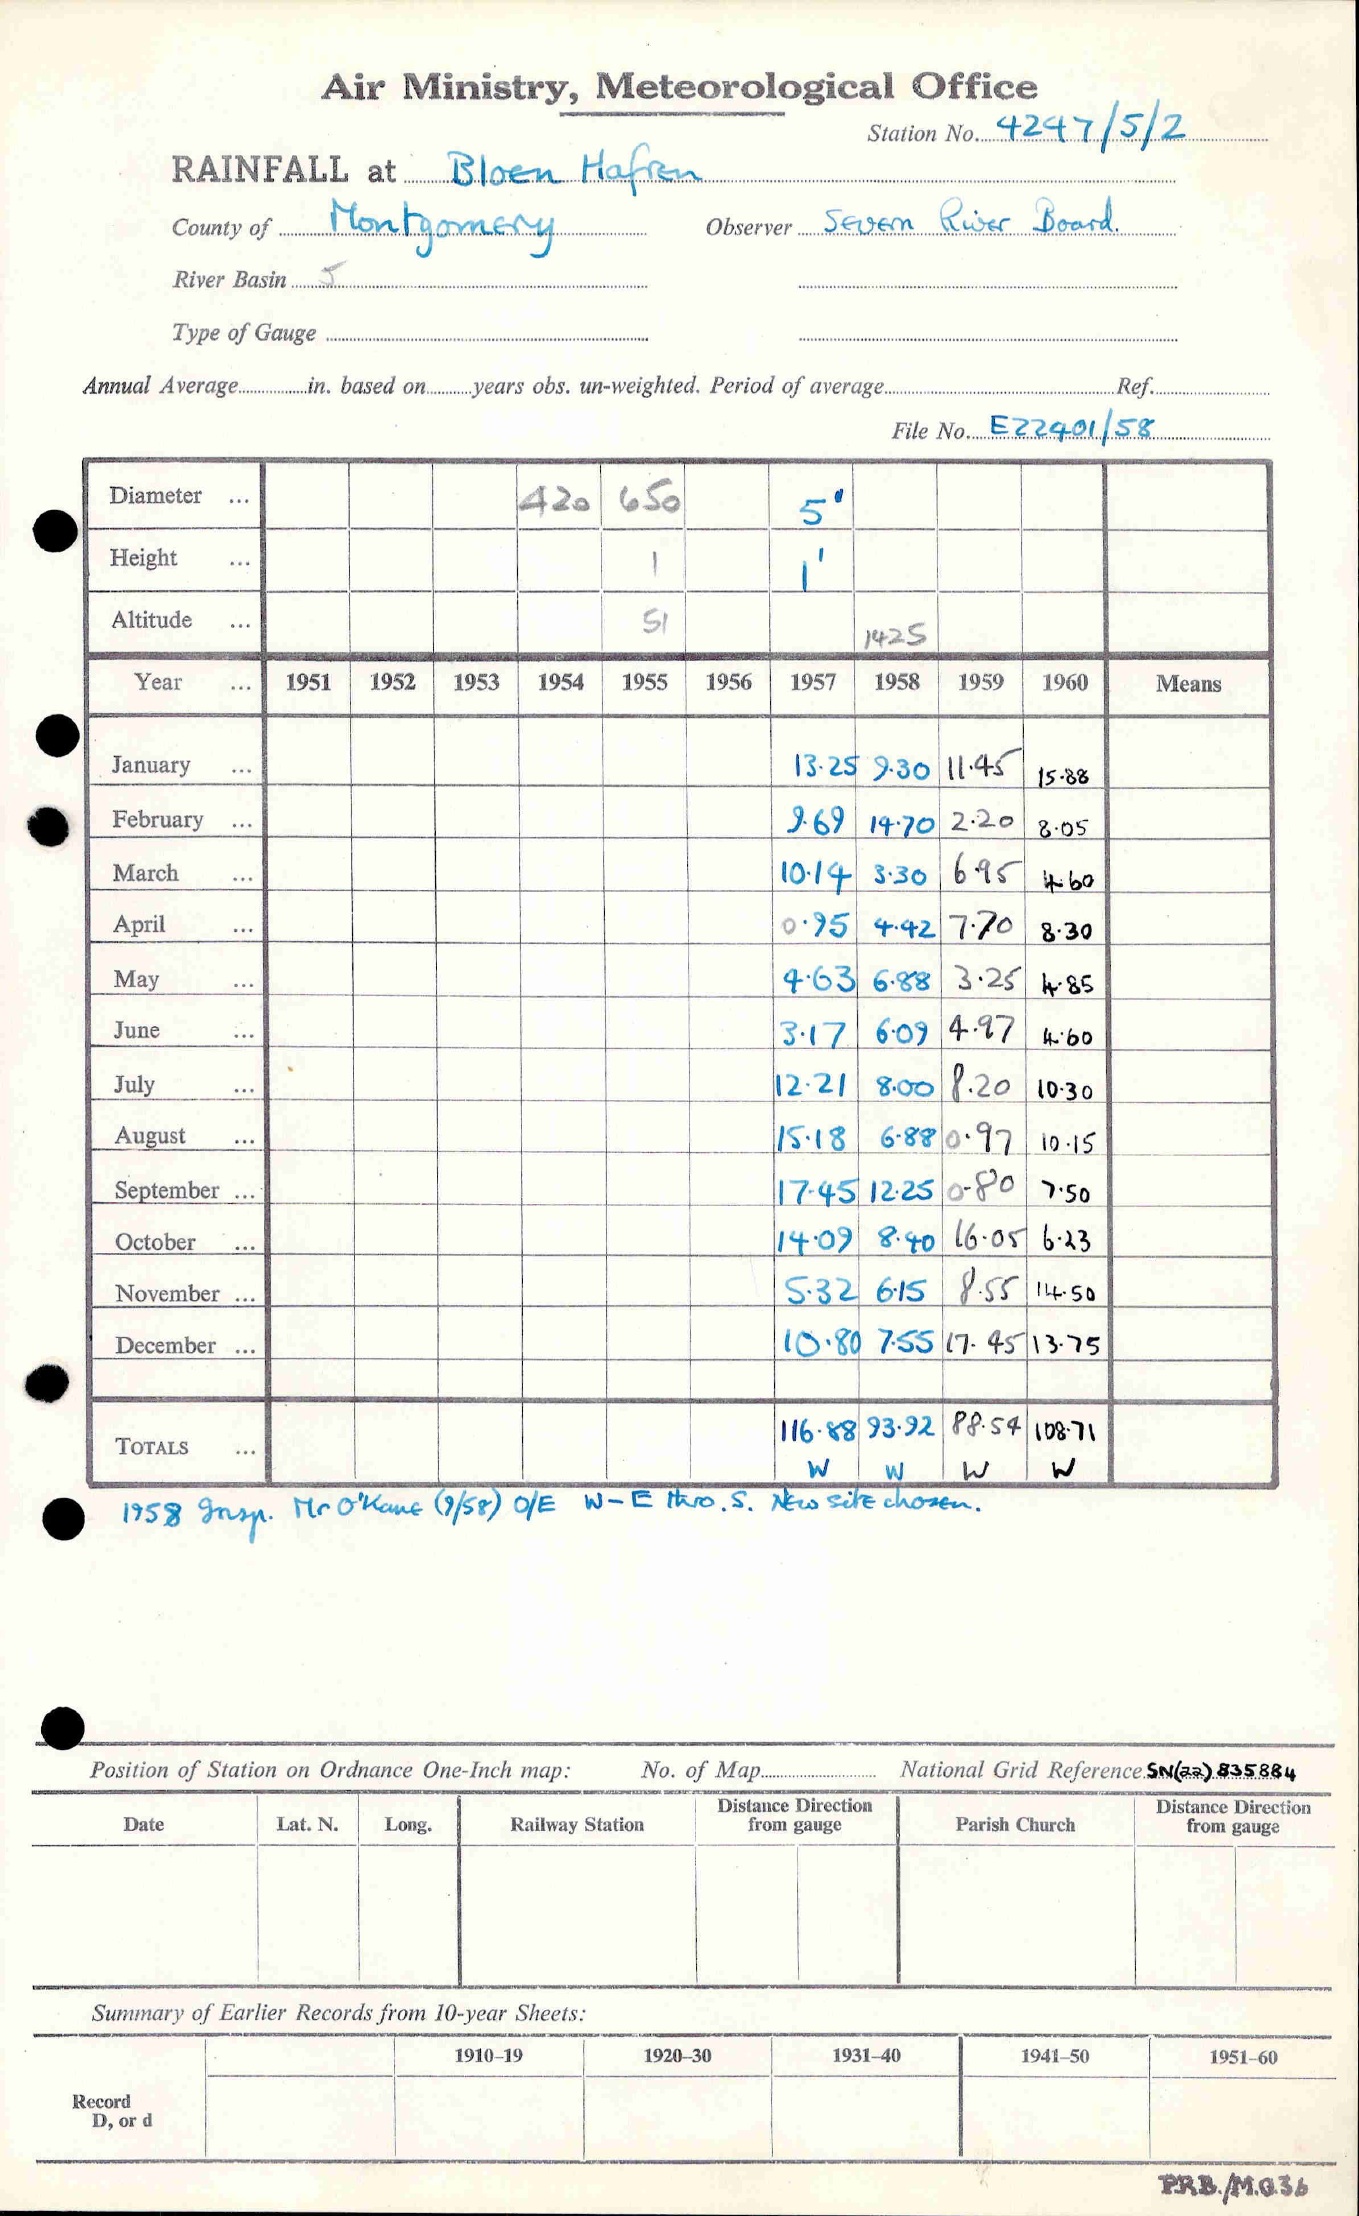 Air Ministry, Meteorological Office
Station No. 4247/5/2
RAINFALL at Bloen Hafren
County of Montgomery Observer Severn River Board.
River Basin 5
Type of Gauge
Annual Average in. based on years obs. un-weighted. Period of average Ref.
File No. E22401/58
Diameter ... 420 650 5"
Height ... 1 1'
Altitude ... 51 1425
Year ... 1951 1952 1953 1954 1955 1956 1957 1958 1959 1960 Means
January ... 13.25 9.30 11.45 15.88
February ... 9.69 14.70 2.20 8.05
March ... 10.14 3.30 6.95 4.60
April ... 0.95 4.42 7.70 8.30
May ... 4.63 6.88 3.25 4.85
June ... 3.17 6.09 4.97 4.60
July ... 12.21 8.00 8.20 10.30
August ... 15.18 6.88 0.97 10.15
September ... 17.45 12.25 0.80 7.50
October ... 14.09 8.40 16.05 6.23
November ... 5.32 6.15 8.55 14.50
December ... 10.80 7.55 17.45 13.75
TOTALS ... 116.88 93.92 88.54 108.71
W W W W
1958 Insp. Mr O'Kane (9/58) O/E W-E thro. S. New site chosen.
Position of Station on Ordnance One-Inch map: No. of Map National Grid Reference SN(22) 835884
Date Lat. N. Long. Railway Station Distance Direction from gauge Parish Church Distance Direction from gauge
Summary of Earlier Records from 10-year Sheets:
1910–19 1920–30 1931–40 1941–50 1951–60
Record
D, or d
P.R.B./M.O.36